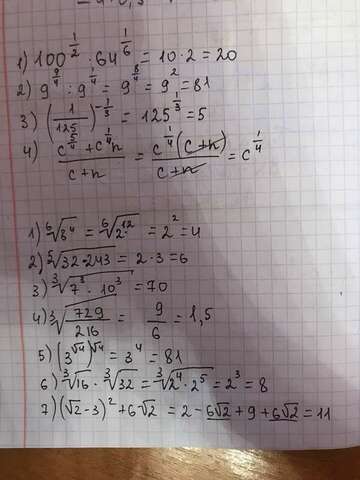 1) 100^(1/2) · 64^(1/6) = 10 · 2 = 20
2) 9^(9/4) : 9^(1/4) = 9^(8/4) = 9^2 = 81
3) (1/125)^(-1/3) = 125^(1/3) = 5
4) (c^(5/4) + c^(1/4)n)/(c+n) = (c^(1/4)(c+n))/(c+n) = c^(1/4)
1) ⁶√8^4 = ⁶√2^12 = 2^2 = 4
2) ⁵√32·243 = 2·3 = 6
3) ³√7^3 · 10^3 = 70
4) ³√729/216 = 9/6 = 1,5
5) (3^√4)^√4 = 3^4 = 81
6) ³√16 · ³√32 = ³√2^4 · 2^5 = 2^3 = 8
7) (√2 - 3)^2 + 6√2 = 2 - 6√2 + 9 + 6√2 = 11